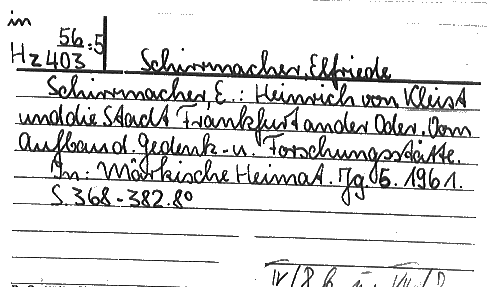 in
56:5
Hz 403
Schirrmacher, Elfriede
Schirrmacher, E.: Heinrich von Kleist
und die Stadt Frankfurt an der Oder. Vom
Aufbau d. Gedenk- u. Forschungsstätte.
In: Märkische Heimat. Jg. 5. 1961.
S. 368-382. 8°